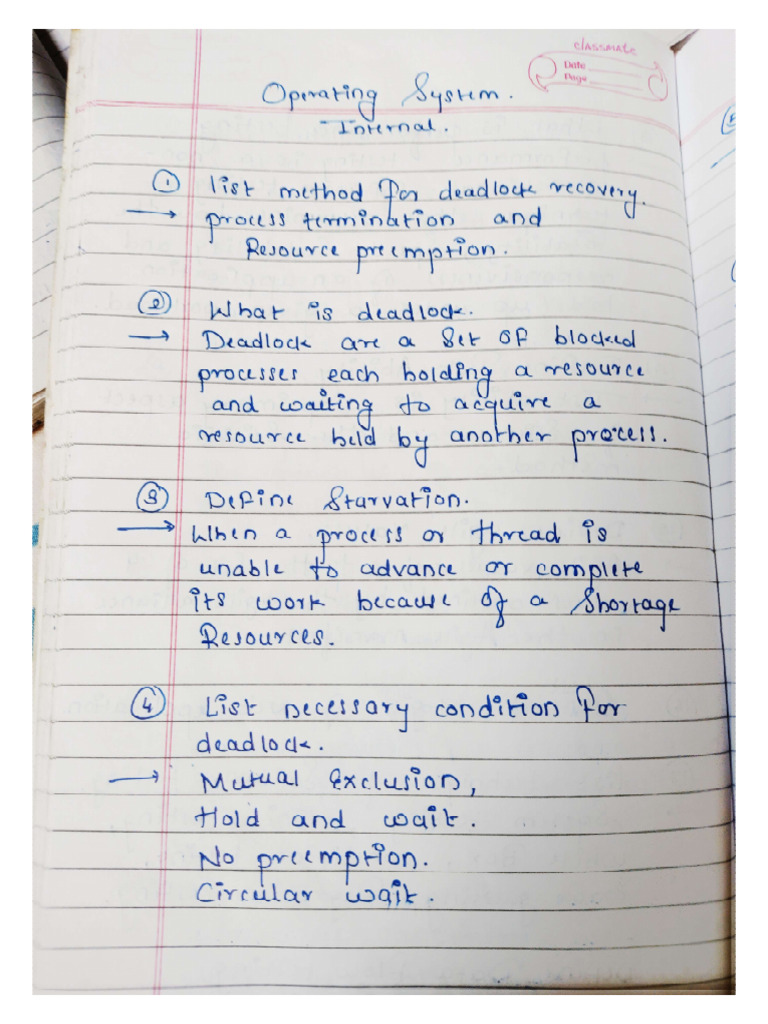 classmate
Date
Page
Operating System.
Internal.
① list method for deadlock recovery.
→ process termination and
Resource preemption.
② What is deadlock.
→ Deadlock are a set of blocked
processes each holding a resource
and waiting to acquire a
resource held by another process.
③ Define Starvation.
→ When a process or thread is
unable to advance or complete
its work because of a Shortage
Resources.
④ List necessary condition for
deadlock.
→ Mutual Exclusion,
Hold and wait.
No preemption.
Circular wait.